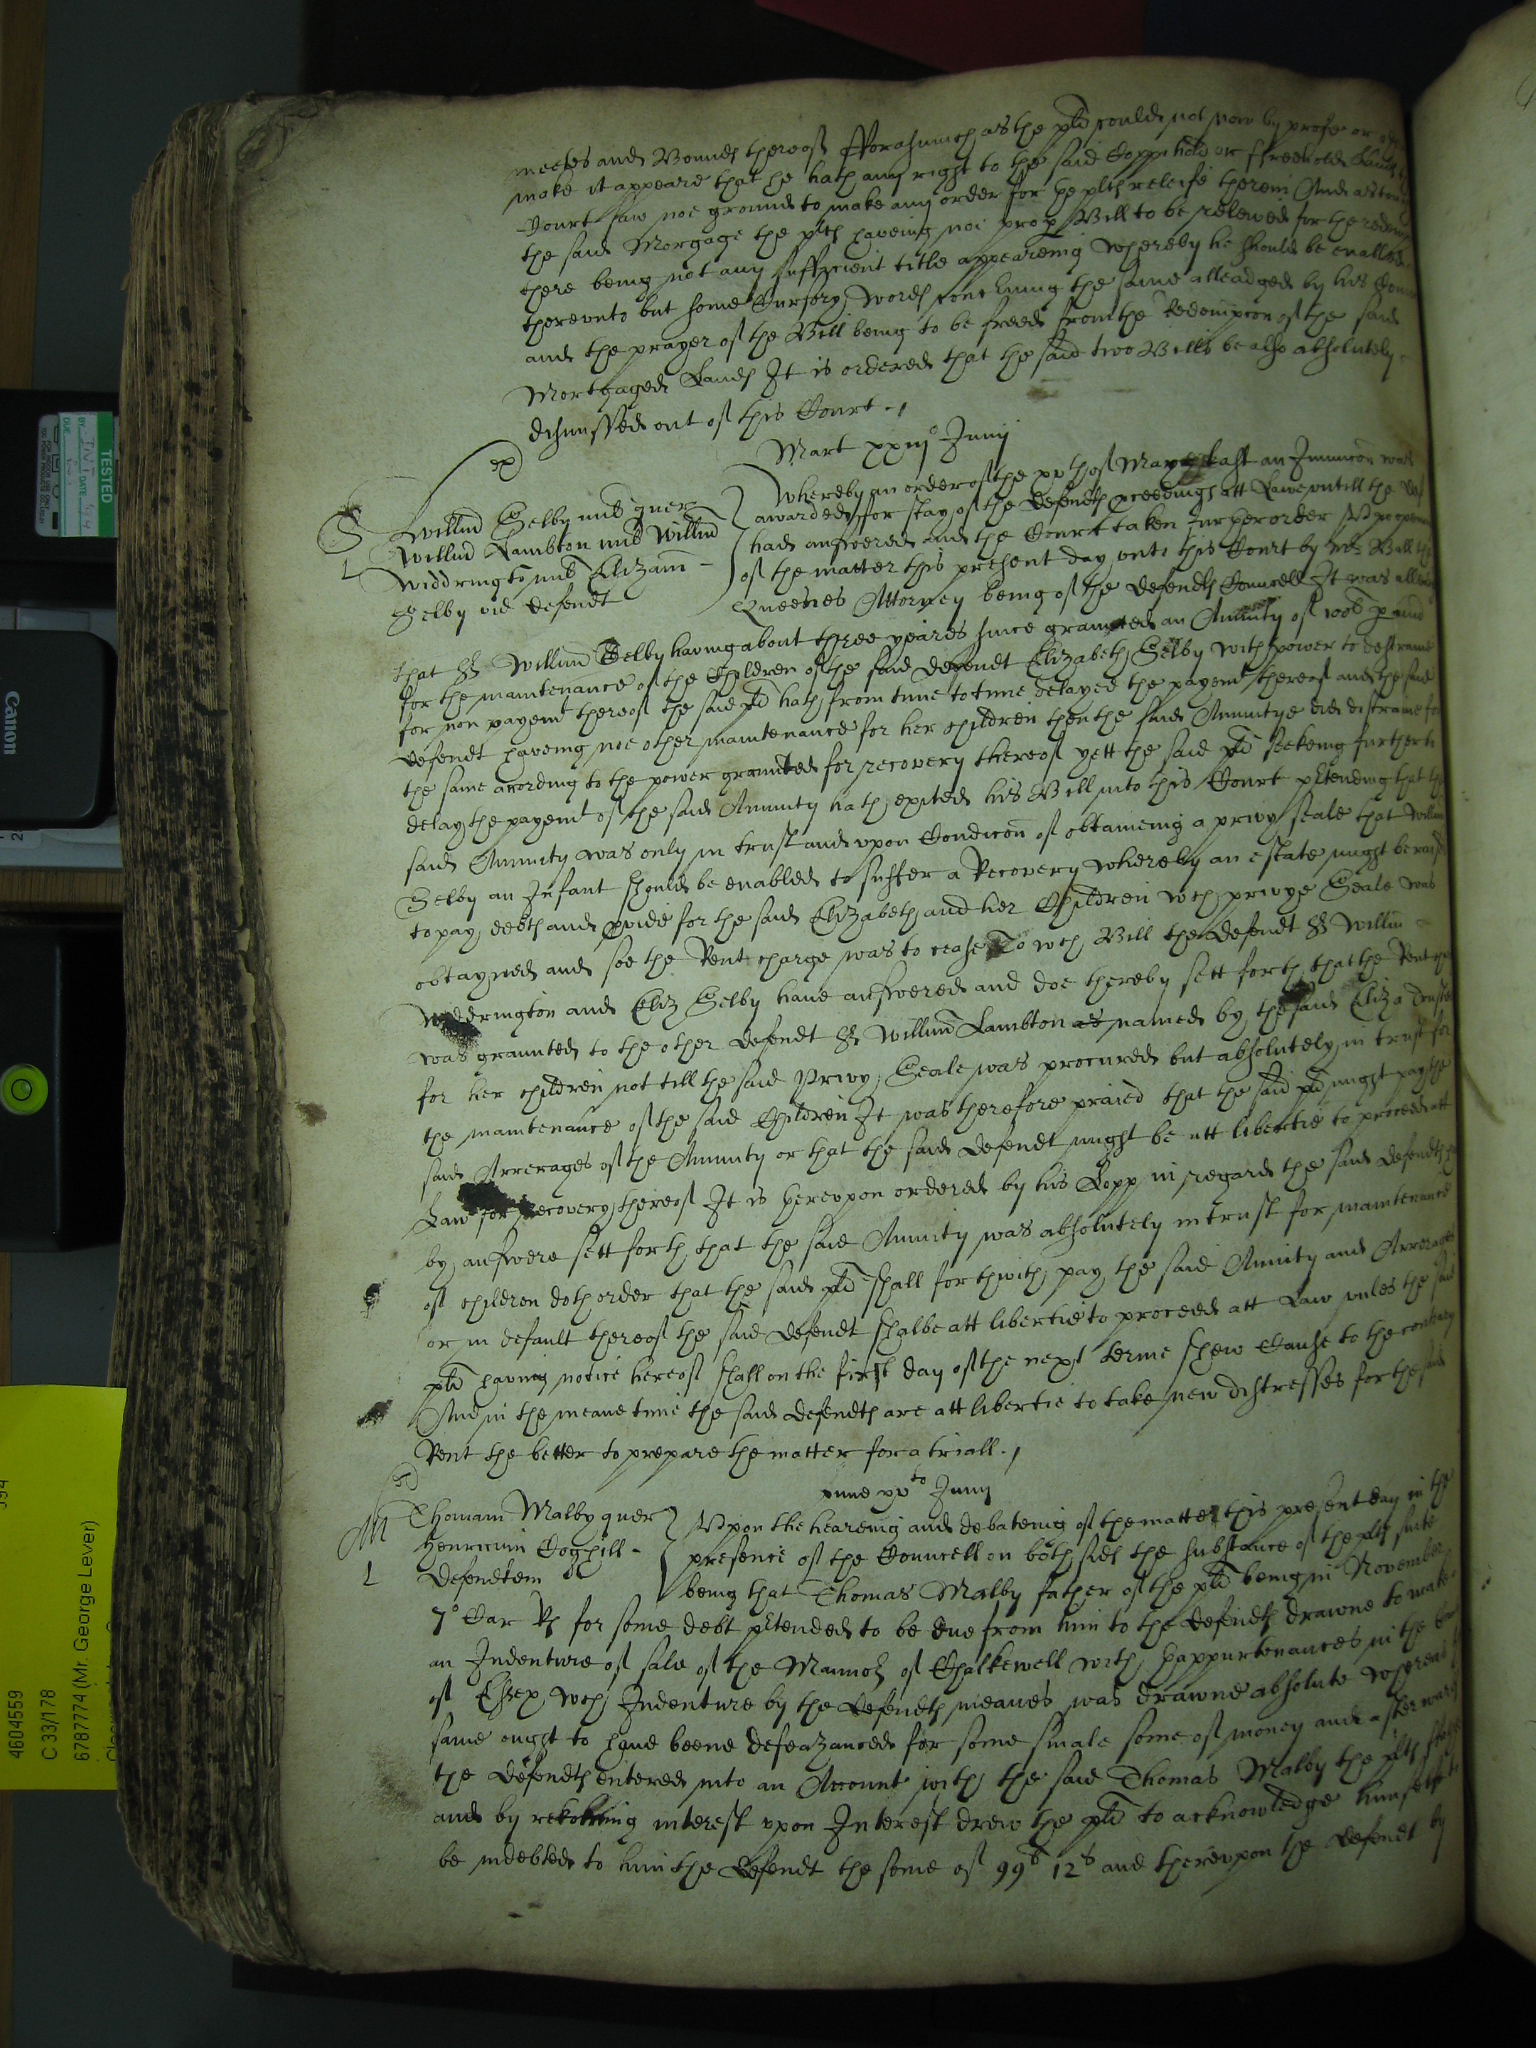 meetes and Bounds thereof Fforasmuch as the plt could not now by profe or
make it appeare that he hath any right to the said Coppihold or ffreehold Lands
Court saw noe ground to make any order for the plts releife therein And as to
the said Morgage the plt haveing noe prop Bill to be releived for the
there being not any sufficient title appeareing whereby he should be enabled
therevnto but some Cursory words conc'ning the same alleadged by his
and the prayer of the Bill being to be freed from the Redempcon of the said
Mortgaged Lands It is ordered that the said two Bills be also absolutely
dismissed out of this Court
Mart xxiijo Junij
S
ex
Willm Selby mil quer
Willm Lambton mil Willm
Widdrington mil Elizam
Selby vid defendt
L
Whereby an order of the xvth of May last an Iniunccon was
awarded for stay of the defendts proceedings att Lawe vntill the
had answered and the Court taken further order Vpon opening
of the matter this present day vnto this Court by Mr
Queenes Attorney being of the defendts Councell It was
that Sr Willm Selby having about three yeares since graunted an Anuity of 100li p annu
for the maintenance of the Children of the said defendt Elizabeth Selby with power to destraine
for non payemt thereof the said plt hath from time to time delayed the payemt thereof and the said
defendt haveing noe other maintenance for her children then the said Anuitye did distraine for
the same acording to the power graunted for recovery thereof yett the said plt seekeing further to
delay the payemt of the said Anuity hath exited his Bill into this Court ptending that the
said Anuity was only in trust and vpon Condicon of obtaineing a privy seale that Willm
Selby an Infant should be enabled to suffer a Recovery whereby an estate might be raised
to pay debts and pvide for the said Elizabeth and her Children wch privye Seale was
obtayned and soe the Rent charge was to cease To wch Bill the defendt Sr Willm
Widdrington and Eliz Selby have answered and doe thereby sett forth that the Rent
was graunted to the other defendt Sr Willm Lambton as named by the said Eliz a
for her children not till the said Privy Seale was procured but absolutely in trust for
the maintenance of the said Children It was therefore praied that the said plt might pay the
said Arrerages of the Anuity or that the said defendt might be att libertie to proceed att
Law for recovery thereof It is herevpon ordered by his Lopp in regard the said defendts
by answere sett forth that the said Anuity was absolutely in trust for maintenance
of children doth order that the said plt shall forthwith pay the said Anuity and Arrerages
or in default thereof the said defendt shalbe att libertie to proceed att Law vnles the said
plt having notice hereof shall on the first day of the next terme shew Cause to the contrary
And in the meane time the said defendts are att libertie to take new distresses for the said
Rent the better to prepare the matter for a triall
Lune xxto Junij
M
ex
Thomam Malby quer
Henricum Coghill
Defendtem
L
Vpon the heareing and debateing of the matter this present day in the
presence of the Councell on both sides the substance of the plts suite
being that Thomas Malby father of the plt being in November
7o Car Rs for some debt ptended to be due from him to the defendts drawne to make
an Indenture of sale of the Mannor of Chalkewell with thappurtenances in the
of Essex wch Indenture by the defendts meanes was drawne absolute whereas
same ought to have beene defeazanced for some smale some of money and afterwards
the defendts entered into an Account with the said Thomas Malby the plts
and by reckoning interest vpon Interest drew the plt to acknowledge himselfe to
be indebted to him the defendt the some of 99li 12s and therevpon the defendt by
TESTED
Canon
4604559
C 33/178
6787774 (Mr. George Lever)